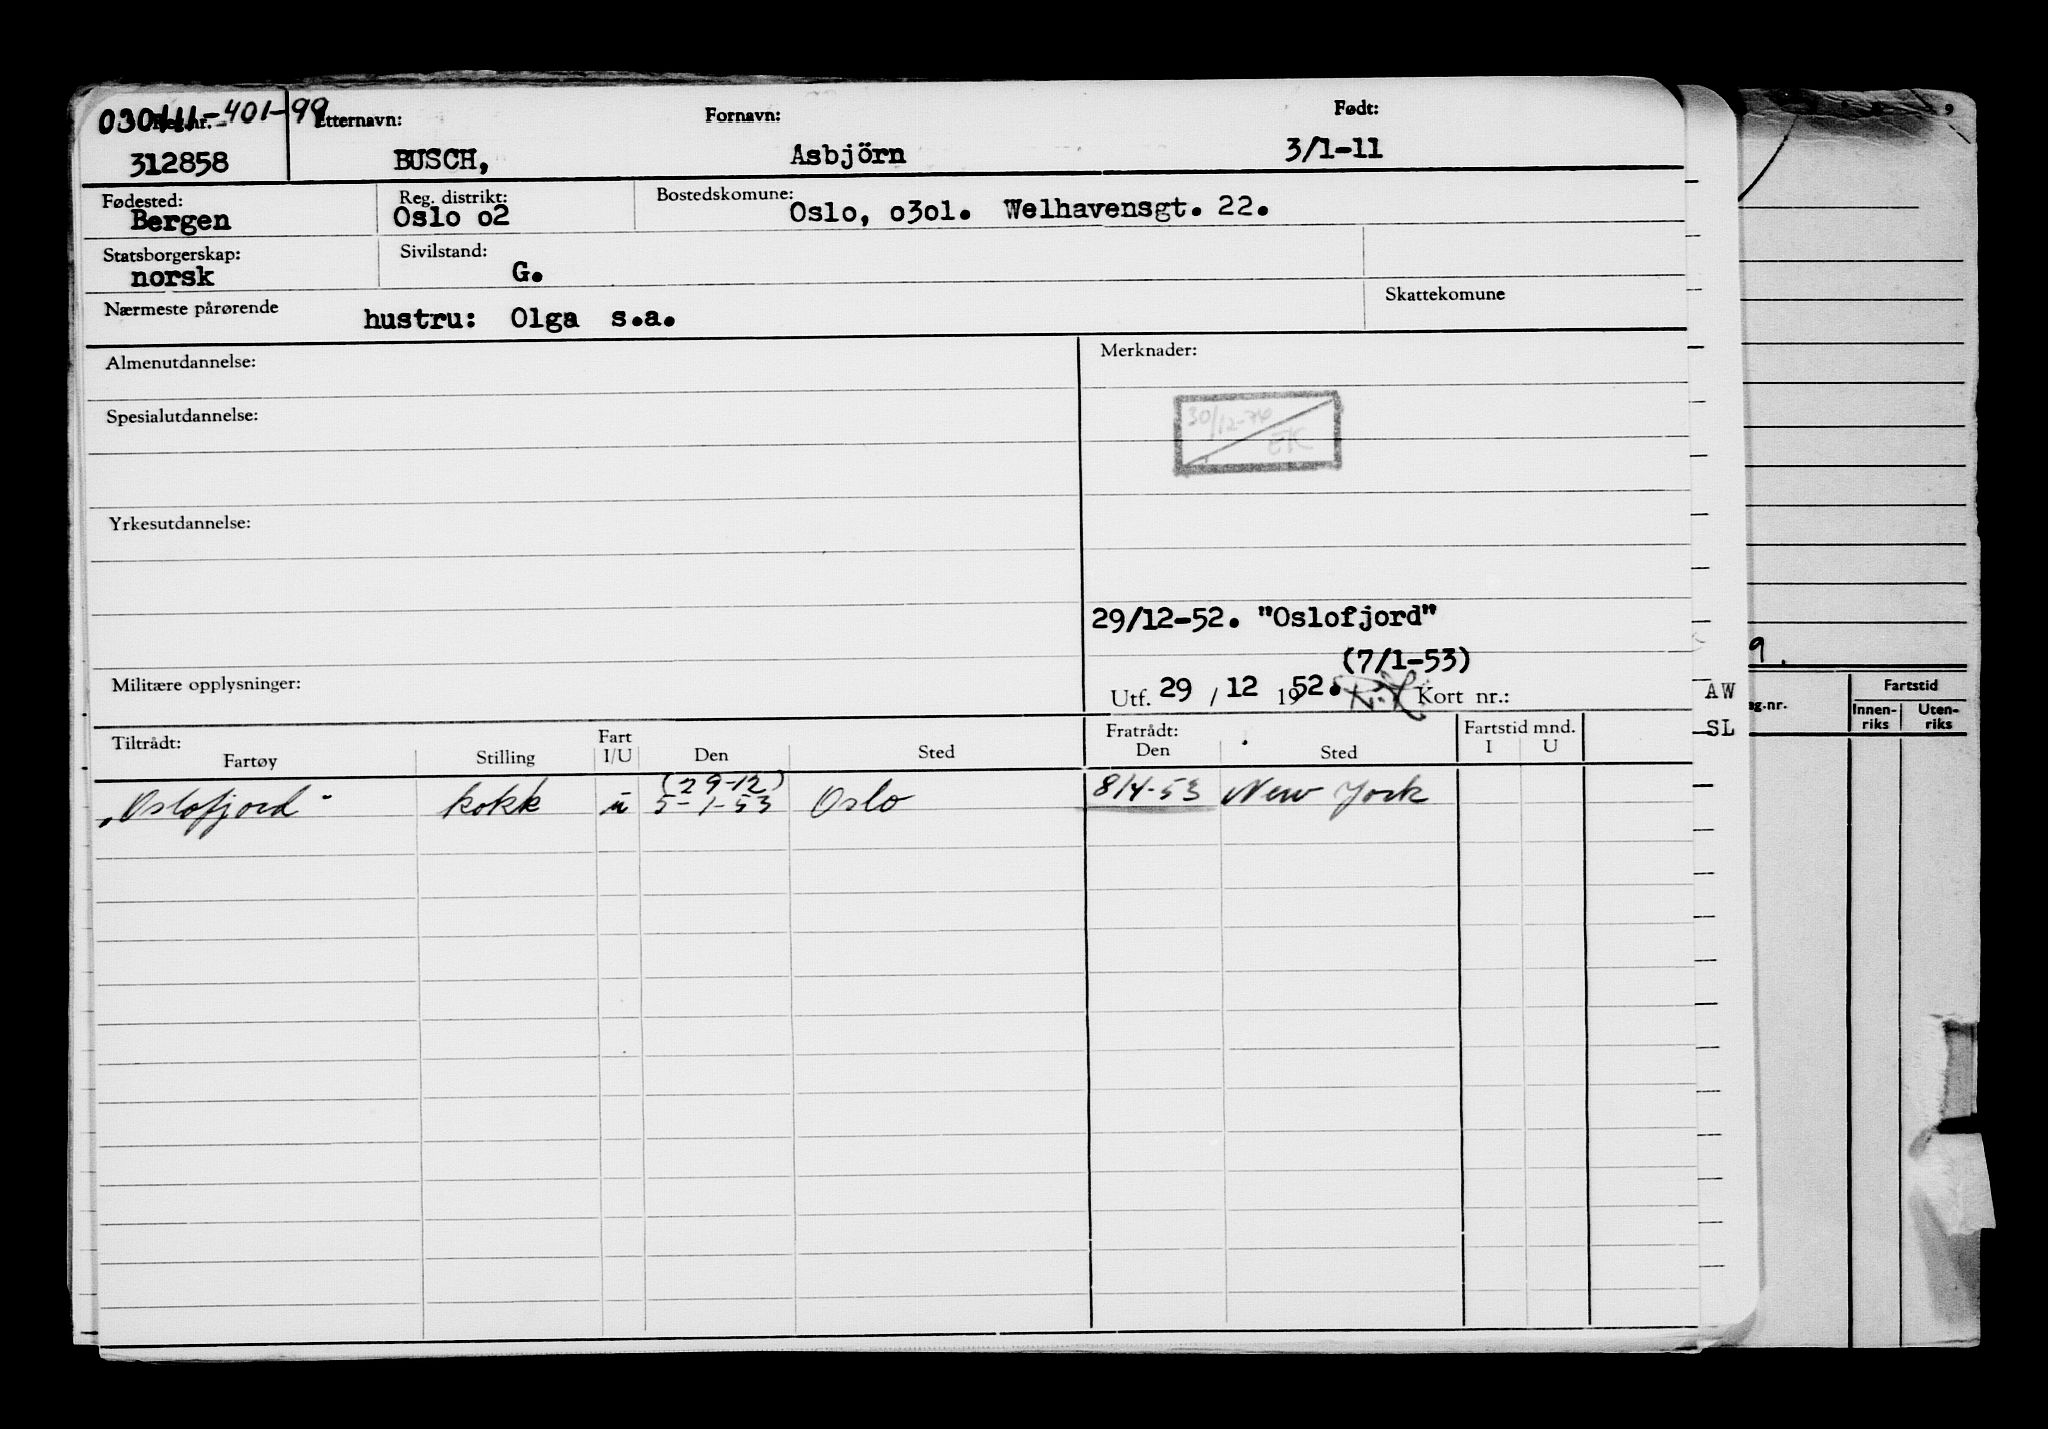 030111-401-99
Reg.nr. Etternavn: Fornavn: Født:
312858 BUSCH, Asbjörn 3/1-11
Fødested: Reg. distrikt: Bostedskomune:
Bergen Oslo o2 Oslo, o3ol. Welhavensgt. 22.
Statsborgerskap: Sivilstand:
norsk G.
Nærmeste pårørende hustru: Olga s.a. Skattekomune
Almenutdannelse: Merknader:
30/12-74
EK
Spesialutdannelse:
Yrkesutdannelse:
29/12-52. "Oslofjord"
(7/1-53)
Militære opplysninger: Utf. 29 / 12 1952. Kort nr.:
Tiltrådt: Fratrådt:
Fartøy Stilling Fart I/U Den Sted Den Sted Fartstid mnd. I U
(29-12)
"Oslofjord" kokk u 5-1-53 Oslo 8/4-53 New York
9.
AW
SL
ag.nr. Fartstid
Innen-riks Uten-riks